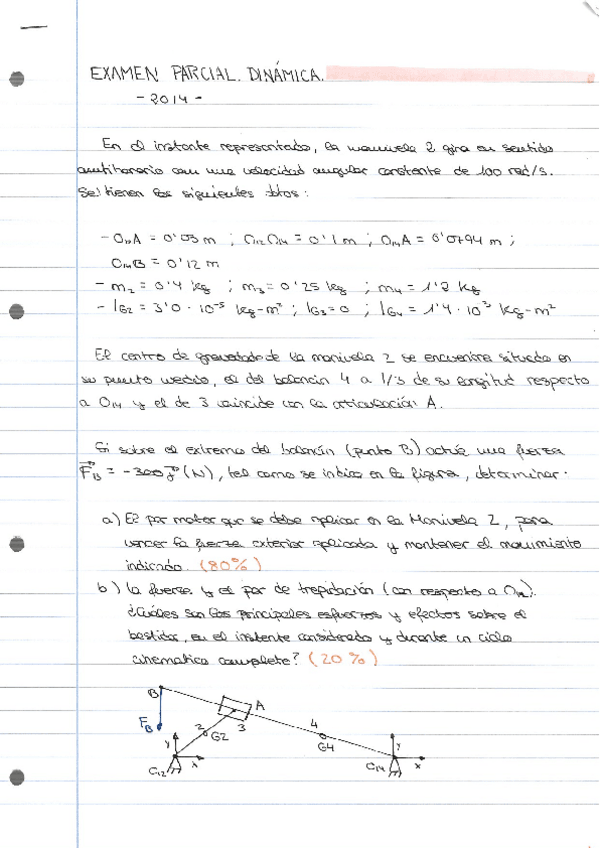 EXAMEN PARCIAL. DINÁMICA.
- 2014 -
En el instante representado, la manivela 2 gira en sentido
antihorario con una velocidad angular constante de 100 rad/s.
Se tienen los siguientes datos:
- O₁₂A = 0'03 m ; O₁₂O₁₄ = 0'1 m ; O₁₄A = 0'0794 m ;
O₁₄B = 0'12 m
- m₂ = 0'4 kg ; m₃ = 0'25 kg ; m₄ = 1'2 kg
- IG2 = 3'0 · 10⁻⁵ kg-m² ; IG3 = 0 ; IG4 = 1'4 · 10⁻³ kg-m²
El centro de gravedad de la manivela 2 se encuentra situado en
su punto medio, el del balancín 4 a 1/3 de su longitud respecto
a O₁₄ y el de 3 coincide con la articulación A.
Si sobre el extremo del balancín (punto B) actúa una fuerza
F⃗B = -300 j⃗ (N), tal como se indica en la figura, determinar:
a) El par motor que se debe aplicar en la Manivela 2, para
vencer la fuerza exterior aplicada y mantener el movimiento
indicado. (80%)
b) La fuerza y el par de trepidación (con respecto a O₁₂).
¿Cuáles son los principales esfuerzos y efectos sobre el
bastidor, en el instante considerado y durante un ciclo
cinemático completo? (20%)
B
A
FB
2
3
4
G2
G4
y
y
O₁₂
x
O₁₄
x